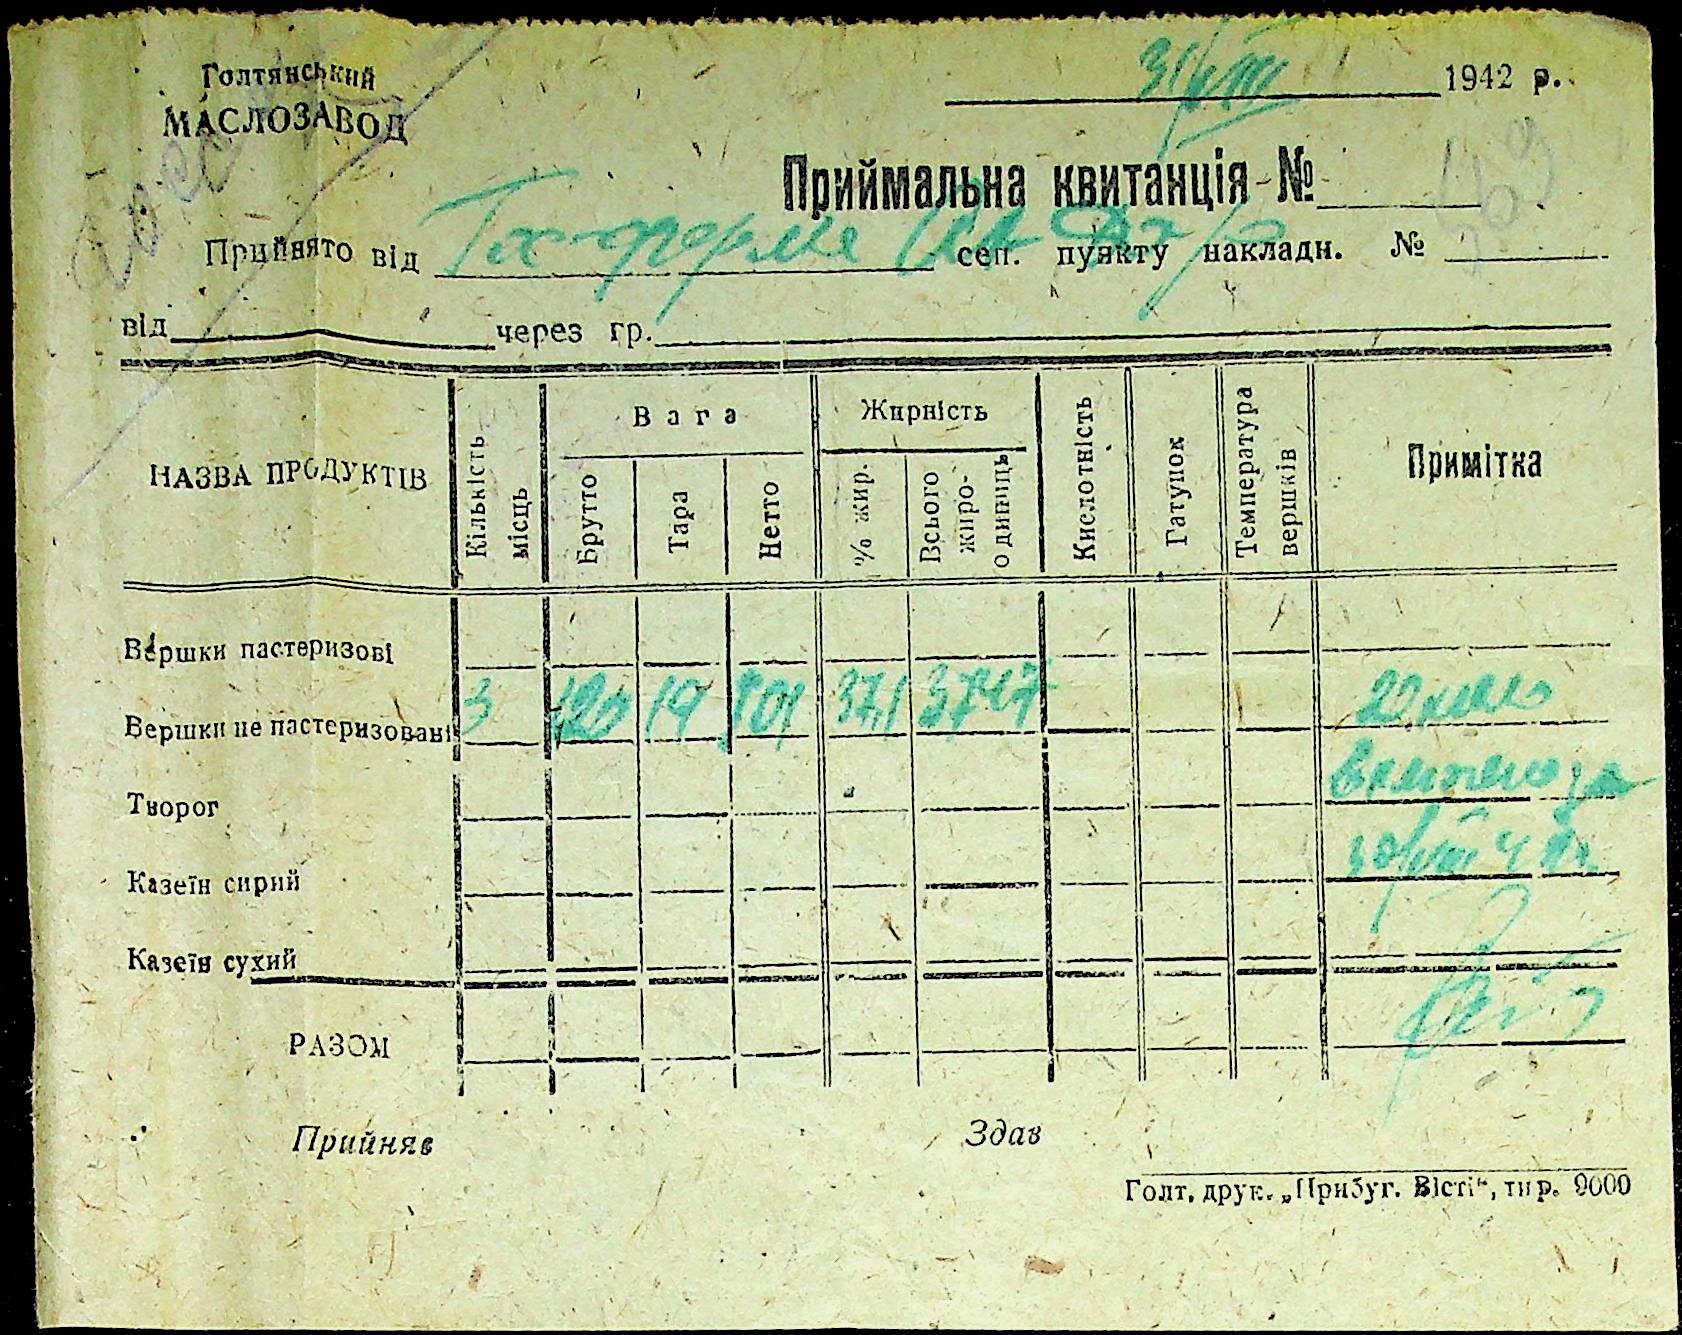 Голтянський
МАСЛОЗАВОД
31/VIII 1942 р.
Приймальна квитанція №
Прийнято від сеп. пункту накладн. №
від через гр.
НАЗВА ПРОДУКТІВ
Кількість місць
Вага
Брутто
Тара
Нетто
Жирність
% жир.
Всього жиро-одиниць
Кислотність
Гатунок
Температура вершків
Примітка
Вершки пастеризові
Вершки не пастеризовані 3 120 19 101 37,1 3747
Творог
Казеїн сирий
Казеїн сухий
РАЗОМ
Прийняв Здав
Голт. друк. „Прибуг. Вісті“, тир. 9000